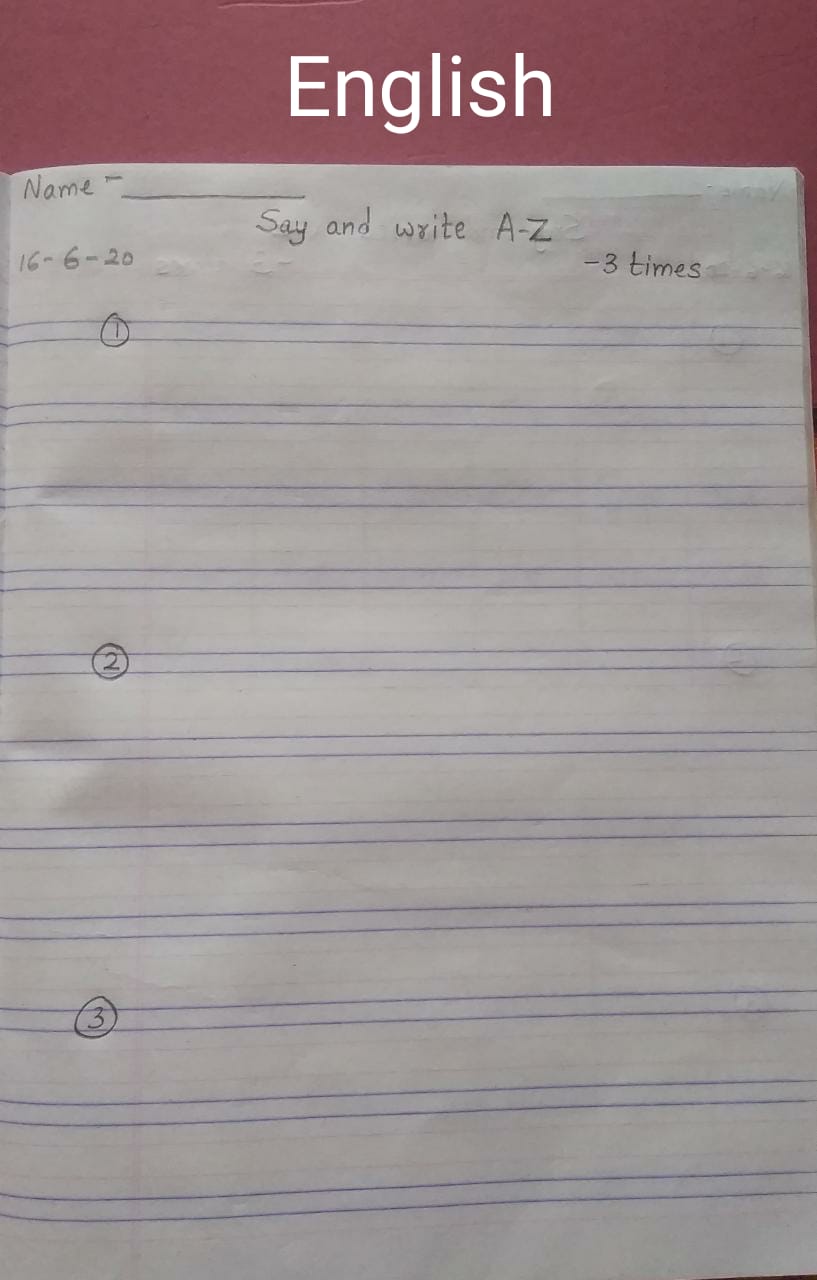 English
Name - __________
Say and write A-Z
16-6-20 -3 times
①
②
③